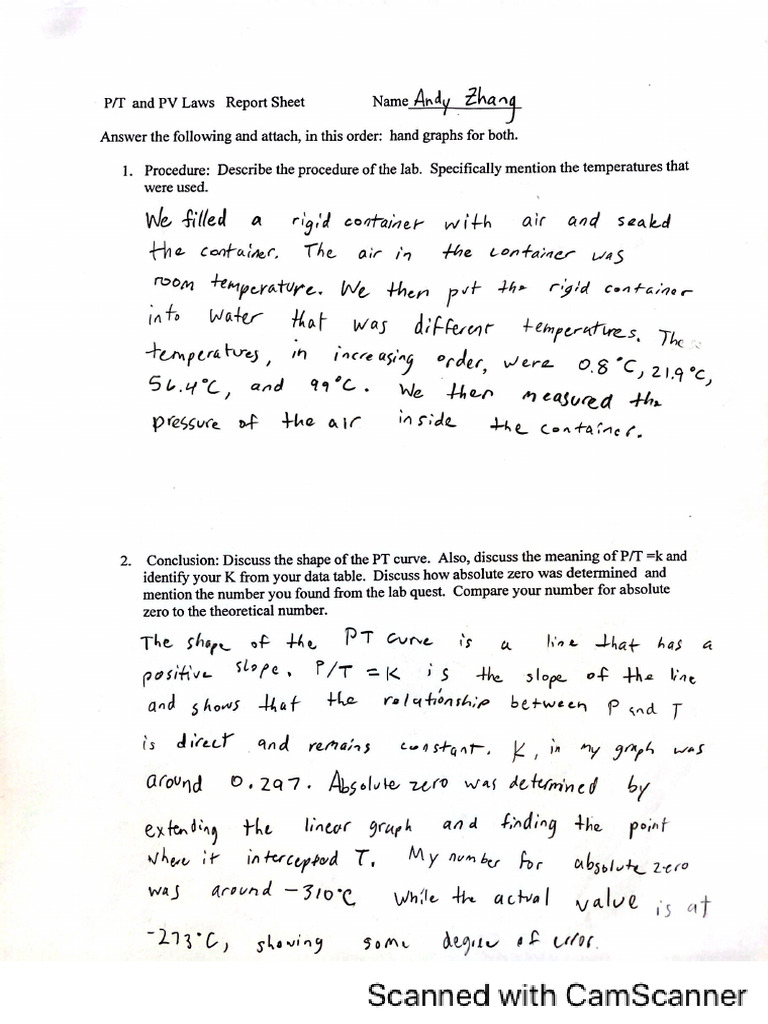 P/T and PV Laws Report Sheet Name Andy Zhang
Answer the following and attach, in this order: hand graphs for both.
1. Procedure: Describe the procedure of the lab. Specifically mention the temperatures that
were used.
We filled a rigid container with air and sealed
the container. The air in the container was
room temperature. We then put the rigid container
into water that was different temperatures. The
temperatures, in increasing order, were 0.8°C, 21.9°C,
56.4°C, and 99°C. We then measured the
pressure of the air inside the container.
2. Conclusion: Discuss the shape of the PT curve. Also, discuss the meaning of P/T =k and
identify your K from your data table. Discuss how absolute zero was determined and
mention the number you found from the lab quest. Compare your number for absolute
zero to the theoretical number.
The shape of the PT curve is a line that has a
positive slope. P/T = K is the slope of the line
and shows that the relationship between P and T
is direct and remains constant. K, in my graph was
around 0.297. Absolute zero was determined by
extending the linear graph and finding the point
where it intercepted T. My number for absolute zero
was around -310°C while the actual value is at
-273°C, showing some degree of error.
Scanned with CamScanner